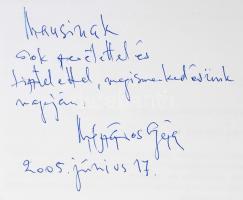 Mausinak
sok szeretettel és
tisztelettel, megismerkedésünk
napján.
Mészáros Géza
2005. június 17.